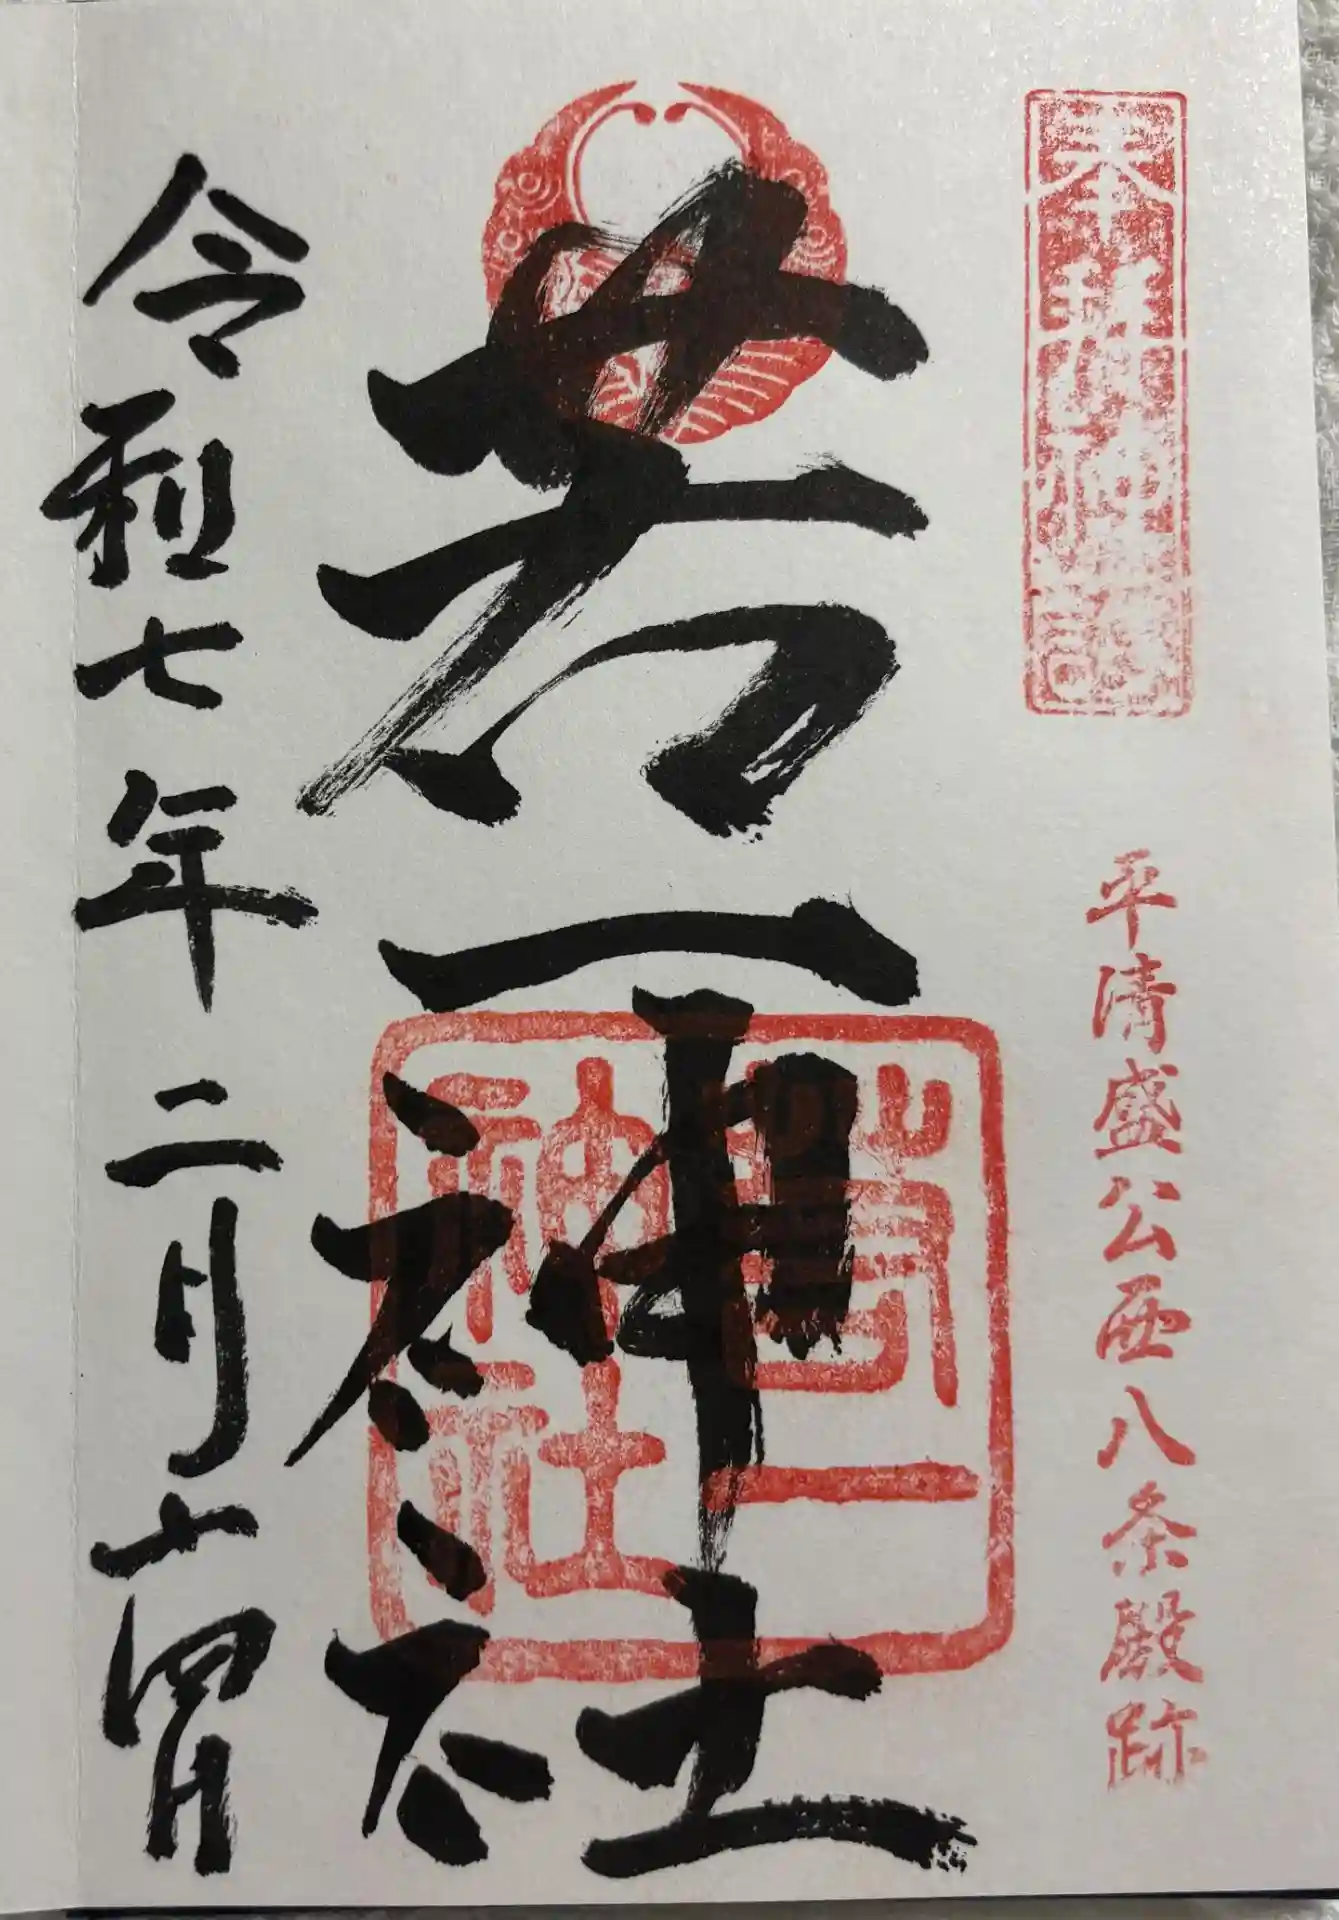 奉拝
平清盛公西八条殿跡
若一神社
若一
神社
令和七年二月十四日